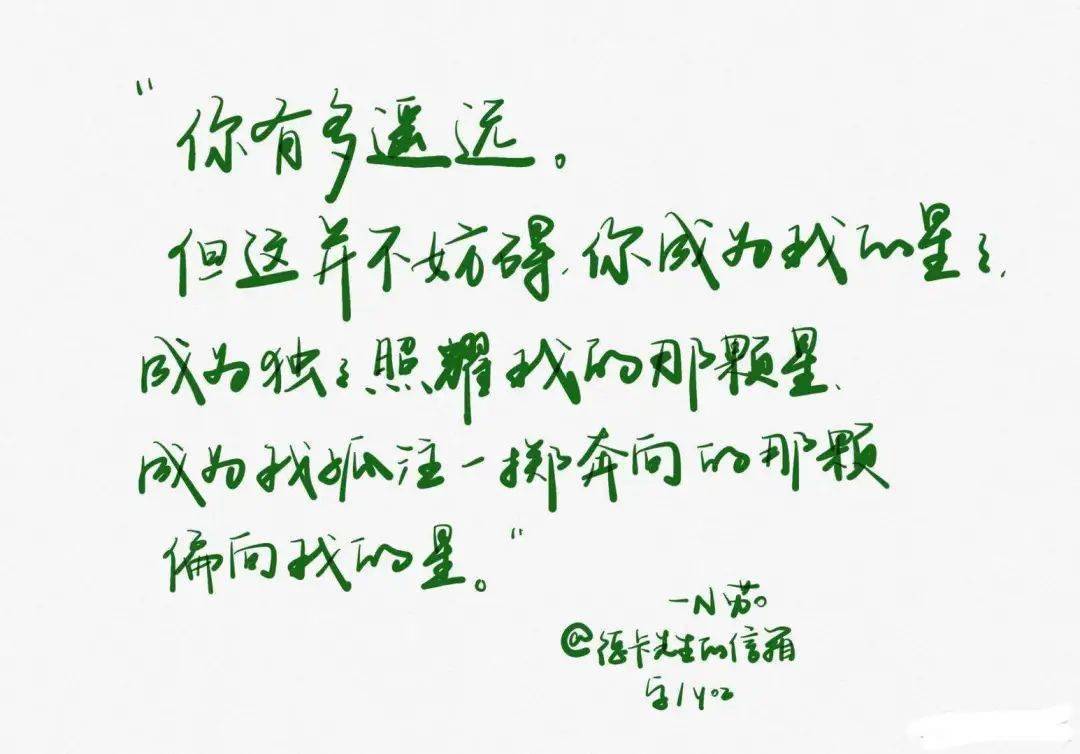 “你有多遥远。
但这并不妨碍,你成为我的星星,
成为独独照耀我的那颗星,
成为我孤注一掷奔向的那颗
偏向我的星。”
—N
@德卡先生的信箱
字/yoz